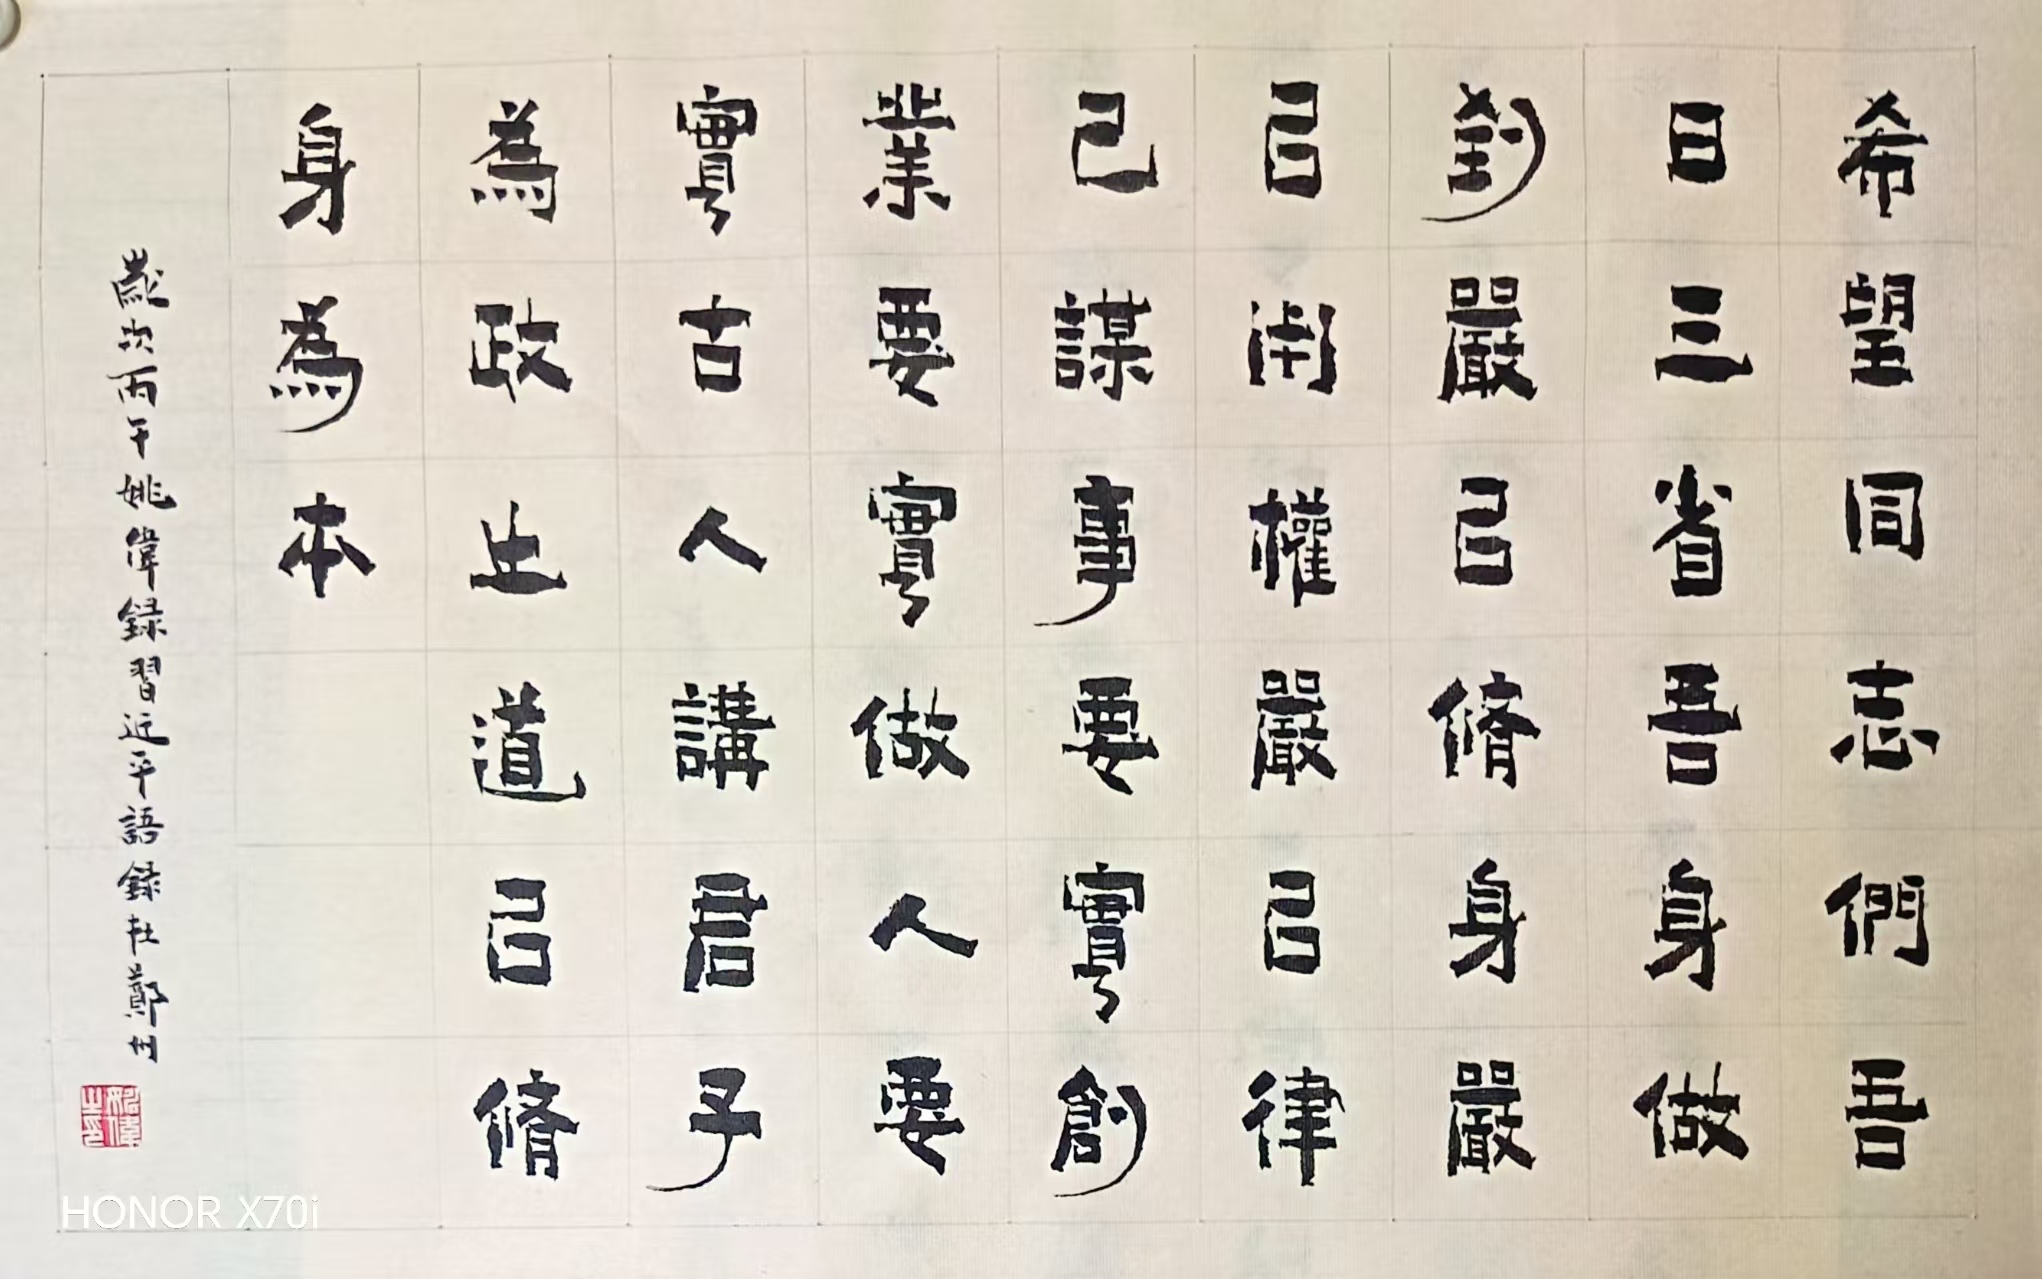 希望同志們吾
日三省吾身做
到嚴㠯脩身嚴
㠯用權嚴㠯律
己謀事要實創
業要實做人要
實古人講君子
為政之道㠯脩
身為本
歲次丙午姚偉録習近平語録於鄭州
姚偉之印
HONOR X70i